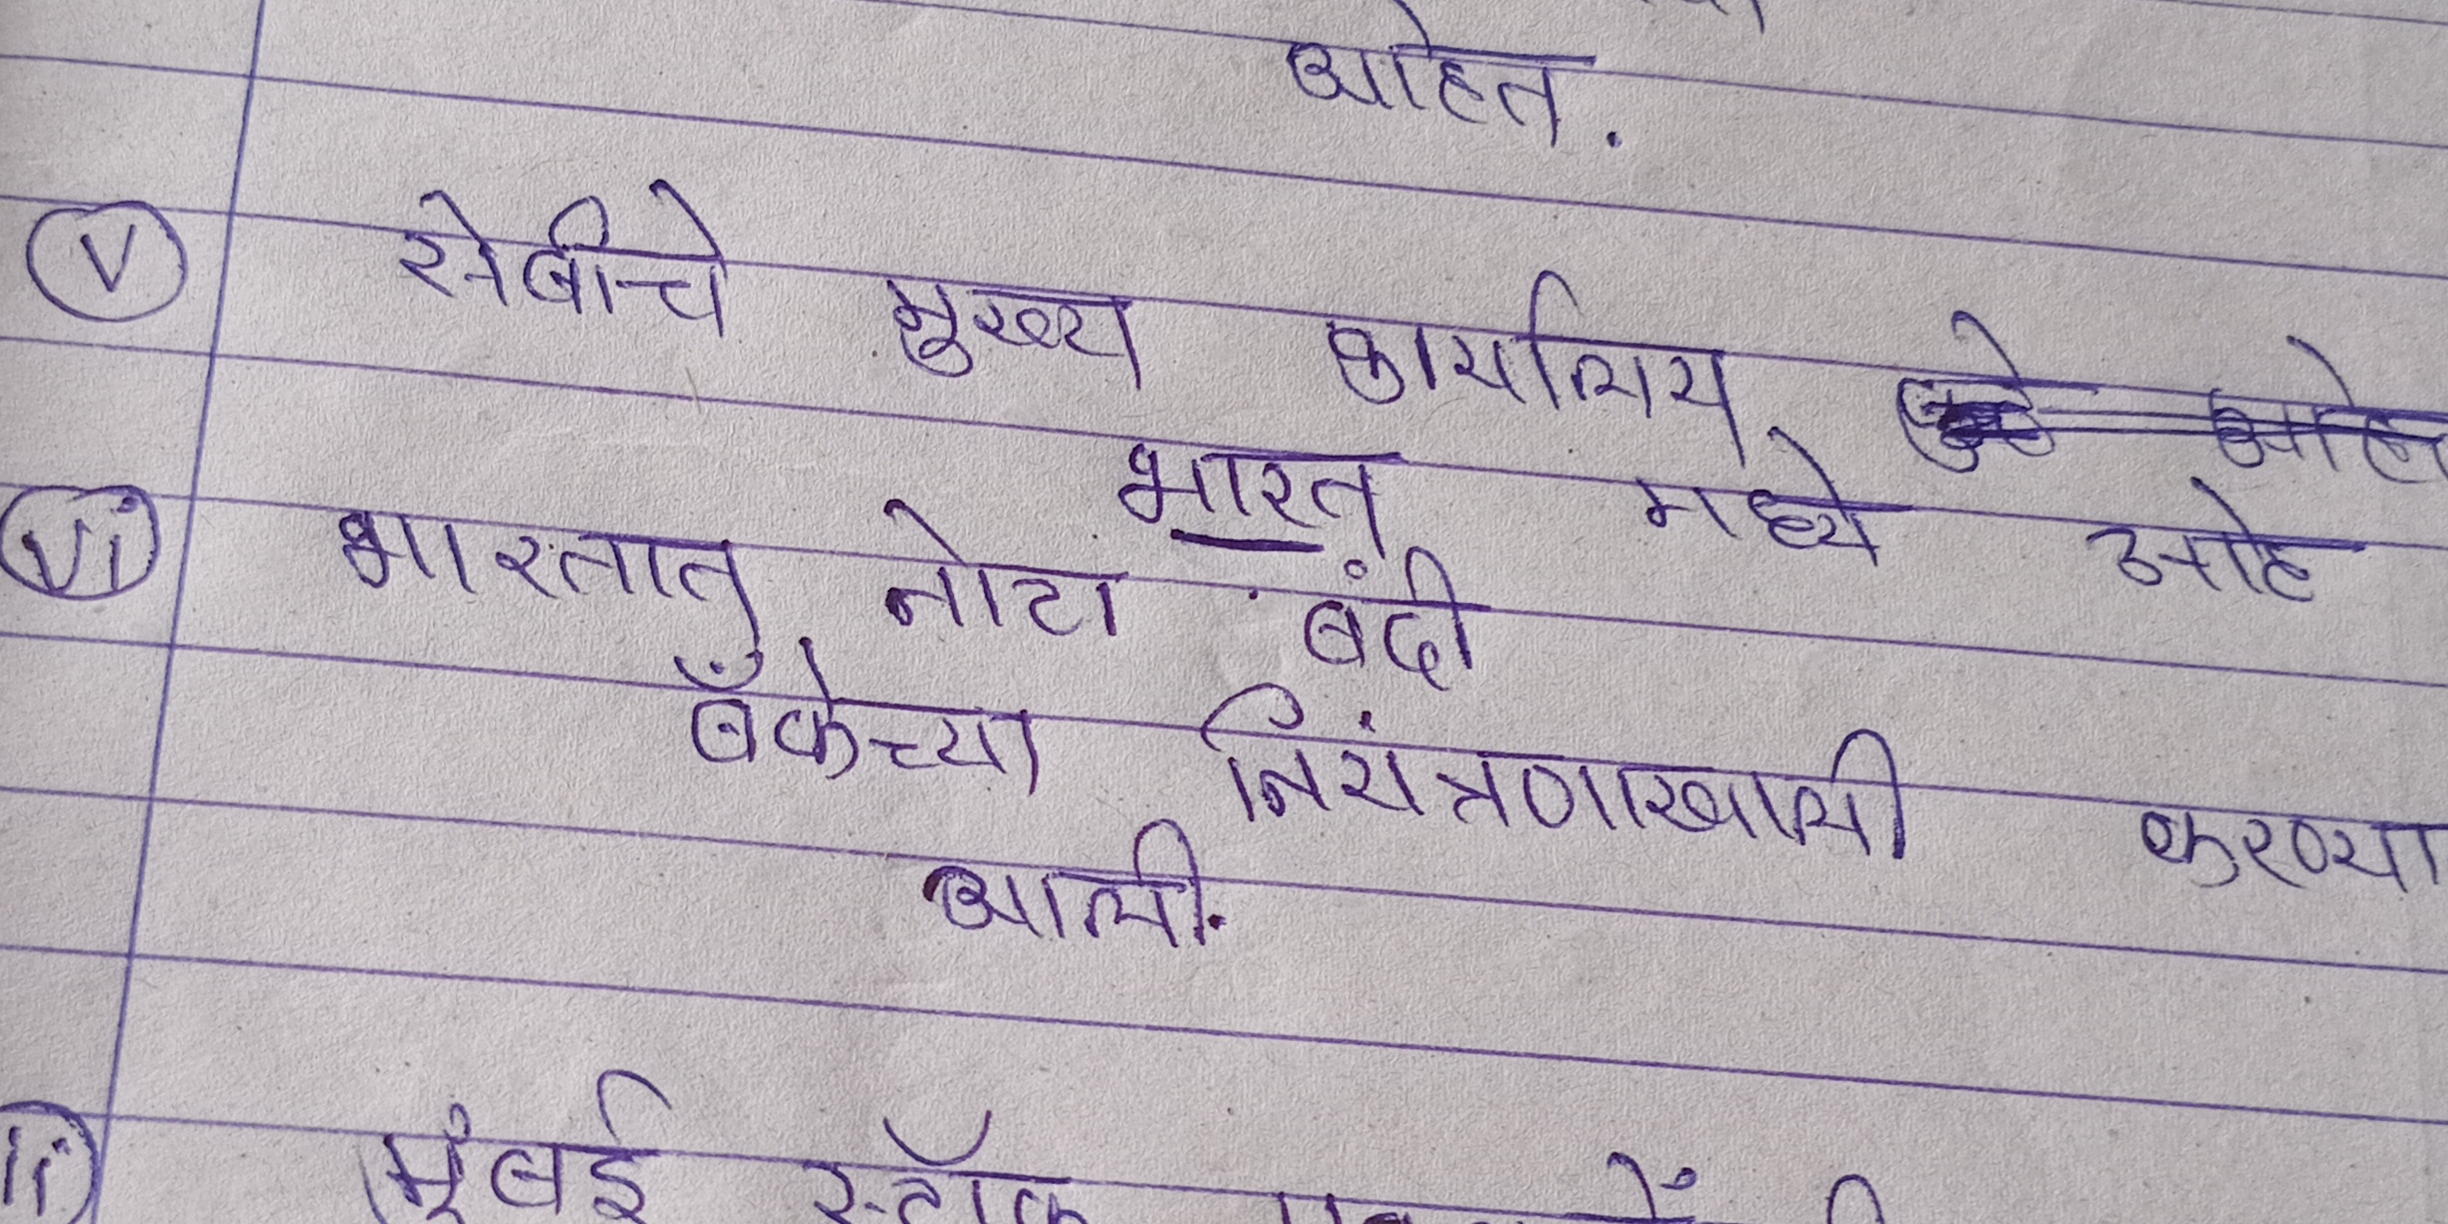 आहेत.
(v) सेबीचे मुख्य कार्यालय
भारत मध्ये आहे
(vi) भारतात नोटा बंदी
बँकेच्या नियंत्रणाखाली करण्या
आली.
मुंबई स्टॉक